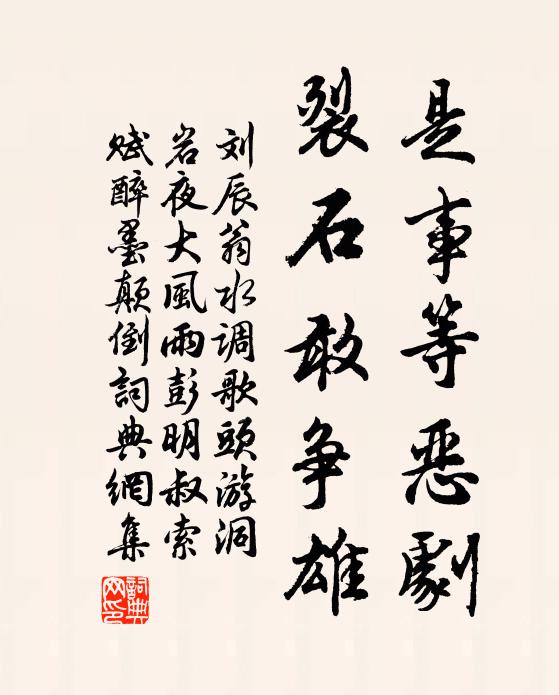 是事等恶劇
裂石敢争雄
刘辰翁水调歌頭游洞
岩夜大風雨彭明叔索
赋醉墨颠倒詞典網集
詞典網印